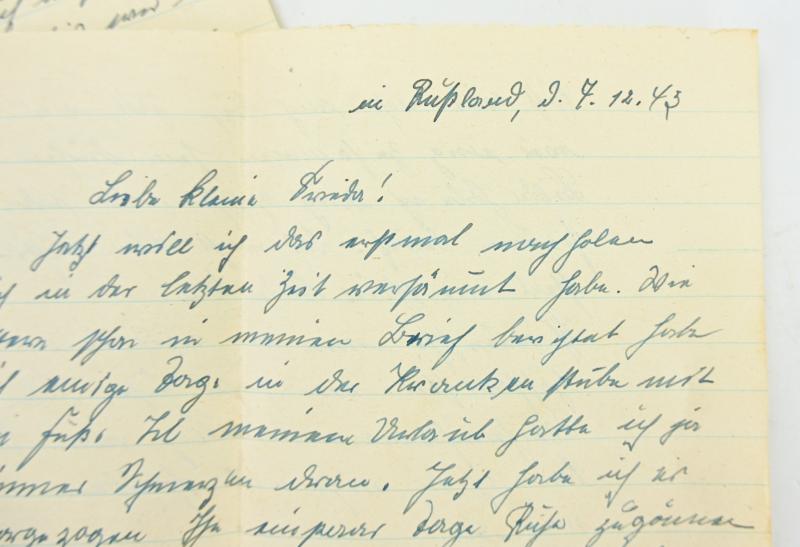 in Rußland, d. 7.12.43
Liebe kleine Frieda!
Jetzt will ich das erstmal nachholen
in der letzten Zeit versäumt habe. Wie
schon in meinen Brief berichtet habe
einige Tage in der Krankenstube mit
Fuß. In meinem Urlaub hatte ich ja
immer Schmerzen dran. Jetzt habe ich es
einpaar Tage Ruhe zugönnen